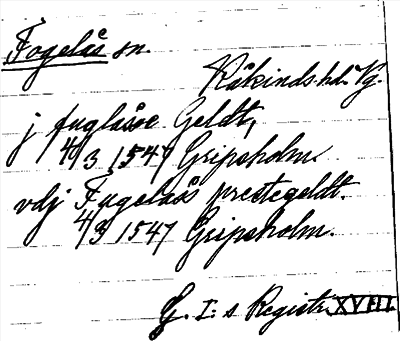 Fogelås sn.
Kåkinds hd. Vg.
j fuglåsse Geldt,
4/3 1547 Gripsholm.
vdj Fugelass prestegeldt.
4/3 1547 Gripsholm.
G. I:s Registr. XVIII